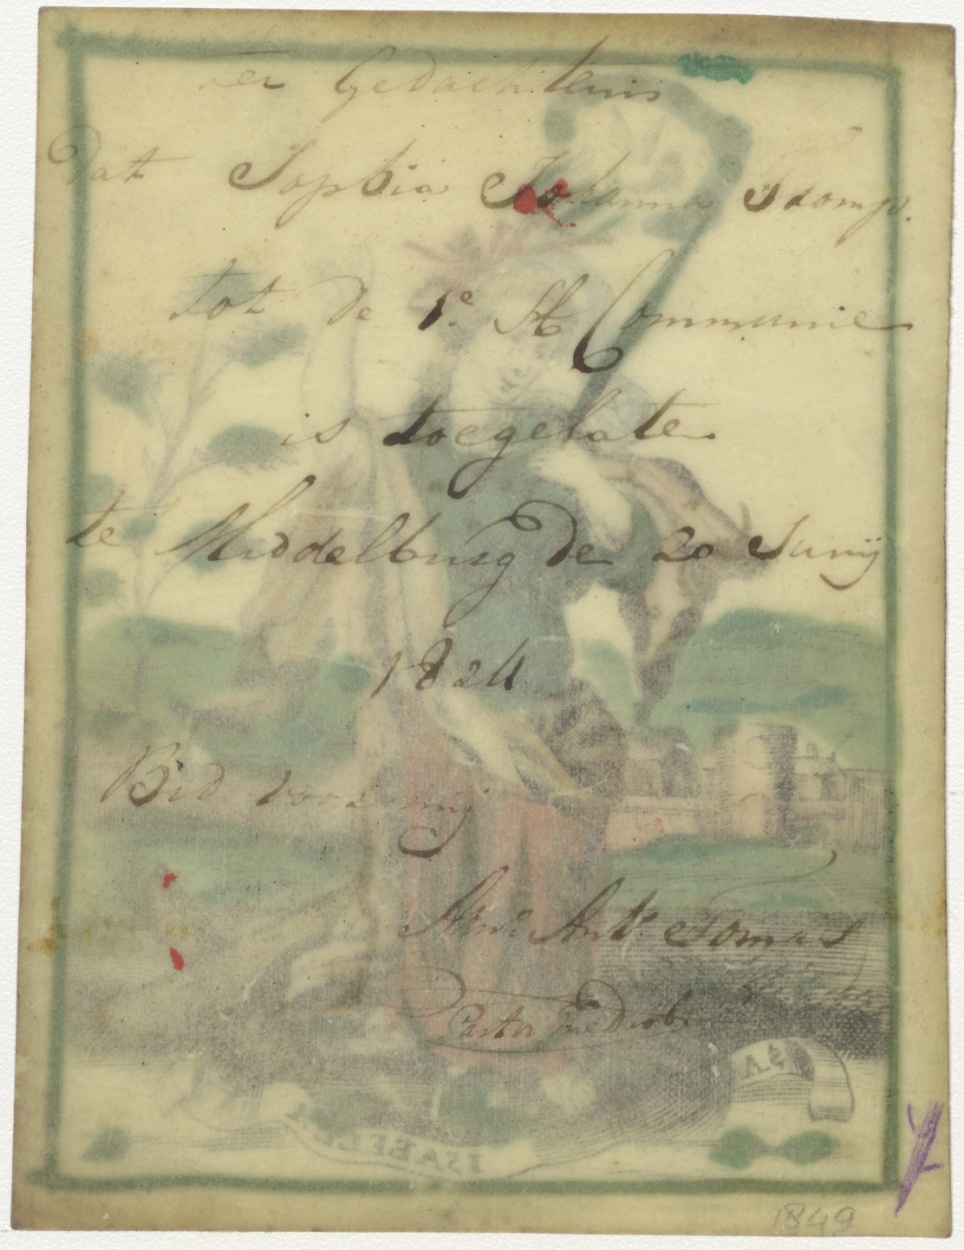 ter Gedachtenis
dat Sophia Johanna Tromp.
tot de 1e. H Communie
is toegelaten
te Middelburg de 20 Junij
1824
Bid voor mij
Ant. Tomas
Pastor
ISABELLA
1849